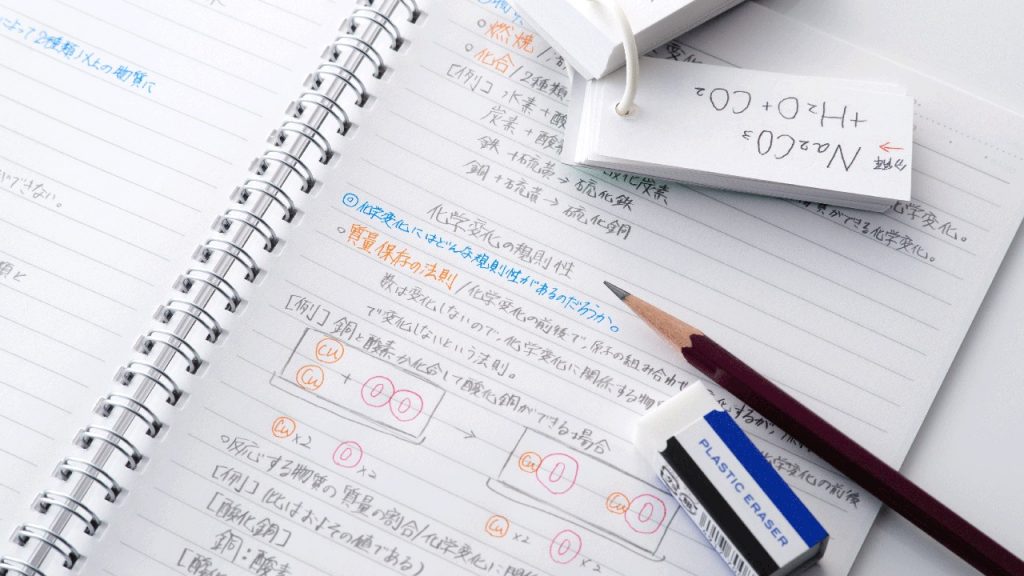 によって2種類以上の物質に
ができない。
燃焼/
化合/2種類
[例] 水素+酸
炭素+酸
酸化炭素
鉄+硫黄→硫化鉄
銅+硫黄→硫化銅
化学変化。
ができる化学変化。
化学変化の規則性
◎化学変化にはどんな規則性があるのだろうか。
○質量保存の法則/化学変化の前後で、原子の組み合わせ
化するが、
数は変化しないので、化学変化に関係する物
化学変化の前後
で変化しないという法則。
[例] 銅と酸素が化合して酸化銅ができる場合
Cu
Cu + O O → Cu O Cu O
Cu×2 O×2 Cu×2 O×2
○反応する物質の質量の割合/化学変化に関係
[例] (比はおよその値である)
[酸化銅]
銅:酸素
分解
Na2CO3
+H2O+CO2
PLASTIC ERASER